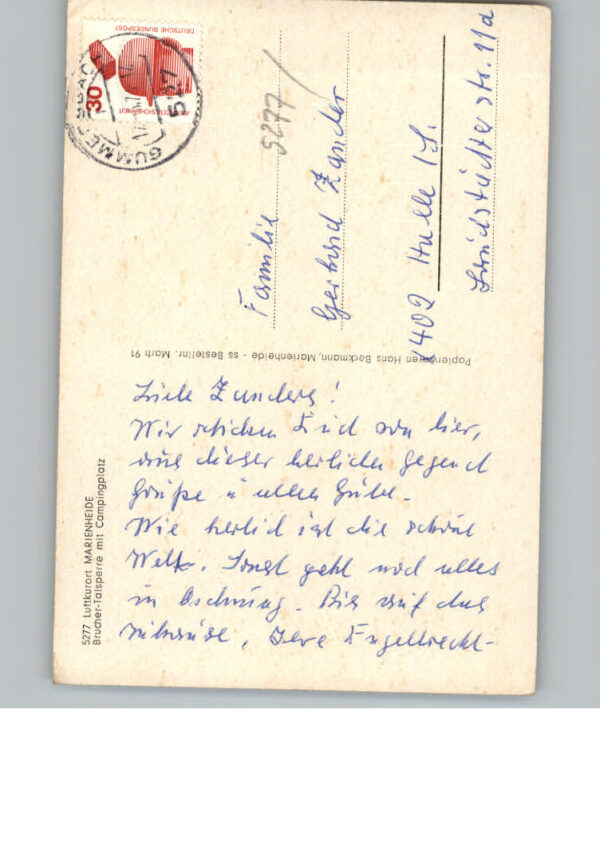 DEUTSCHE BUNDESPOST
30
GUMMERSBACH
527
5277
Familie
Gerhard Zander
402 Halle /S.
Lauchstädter str. 11a
Papierwaren Hans Beckmann, Marienheide - ss Bestellnr. Marh 91
5277 Luftkurort MARIENHEIDE
Brucher-Talsperre mit Campingplatz
Liebe Zanders!
Wir schicken Euch von hier,
aus dieser herlichen Gegend
Grüße u alles Gute.
Wie herlich ist die schöne
Welt. Sonst geht noch alles
in Ordnung. Bis auf das
zuhause, Engelbrecht-